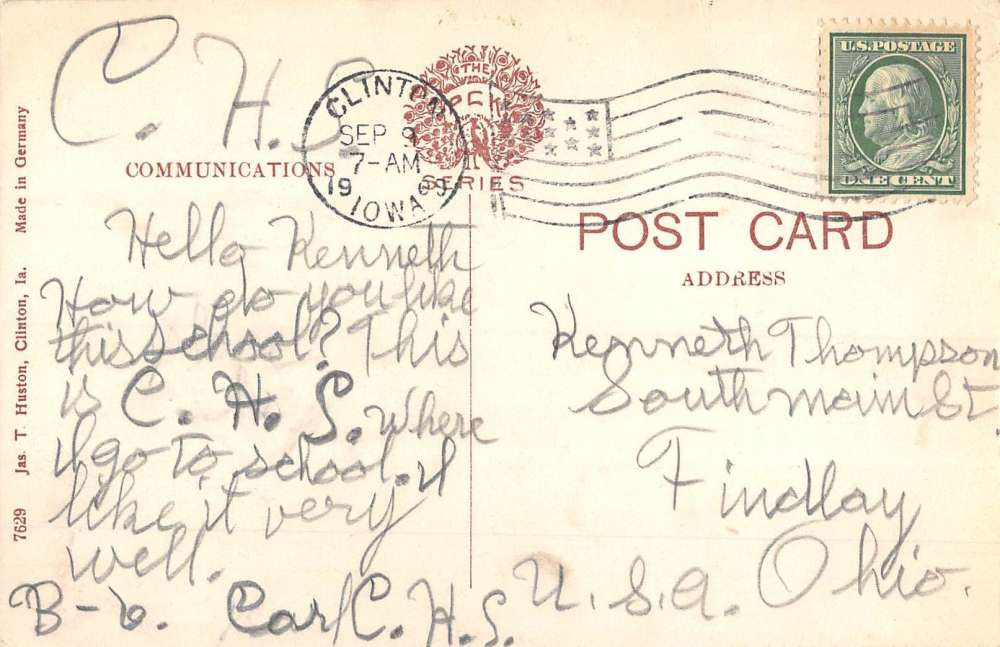 C. H. S.
THE
PCK
SERIES
CLINTON
SEP 9
7-AM
1909
IOWA
U.S.POSTAGE
ONE CENT
COMMUNICATIONS
POST CARD
ADDRESS
Hello Kenneth
How do you like
this school? This
is C. H. S. Where
I go to school. I
like it very
well.
B-6. Carl C. H. S.
Kenneth Thompson
South main St.
Findlay
Ohio.
U. S. A.
7629 Jas. T. Huston, Clinton, Ia. Made in Germany